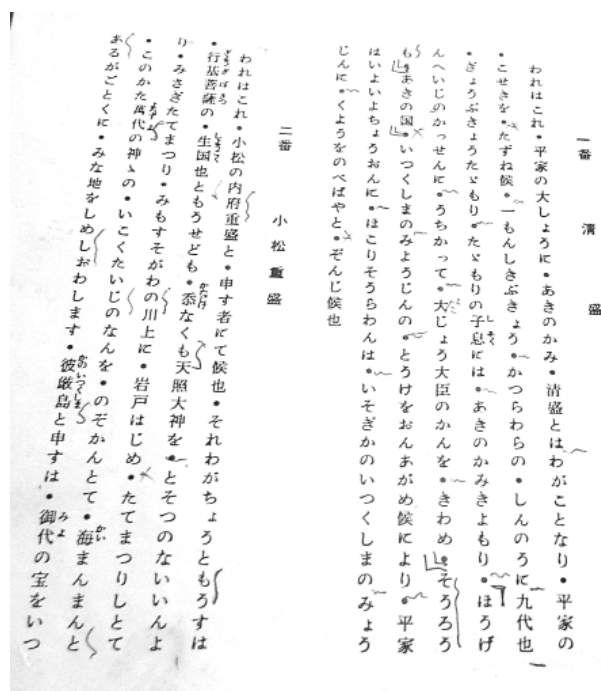 一番 清盛
われはこれ・平家の大しょうに・あきのかみ・清盛とはわがことなり・平家の
・こせきを・たずね候・一もんしきぶきょう・かつらわらの・しんのうに九代也
・ぎょうぶきょうたゞもり・たゞもりの子息には・あきのかみきよもり・ほうげ
んへいじのかっせんに・うちかって・大じょう大臣のかんを・きわめ・そうろう
も・あきの国・いつくしまのみょうじんの・とうけをおんあがめ候により・平家
はいよいよちょうおんに・ほこりそうらわんは・いそぎかのいつくしまのみょう
じんに・くようをのべばやと・ぞんじ候也
二番 小松重盛
われはこれ・小松の内府重盛と・申す者にて候也・それわがちょうともうすは
・行基菩薩の・生国也ともうせども・忝なくも天照大神を・とそつのないいんよ
り・みさぎたてまつり・みもすそがわの川上に・岩戸はじめ・たてまつりしとて
・このかた萬代の神ゝの・いこくたいじのなんを・のぞかんとて・海まんまんと
あるがごとくに・みな地をしめしおわします・彼厳島と申すは・御代の宝をいつ